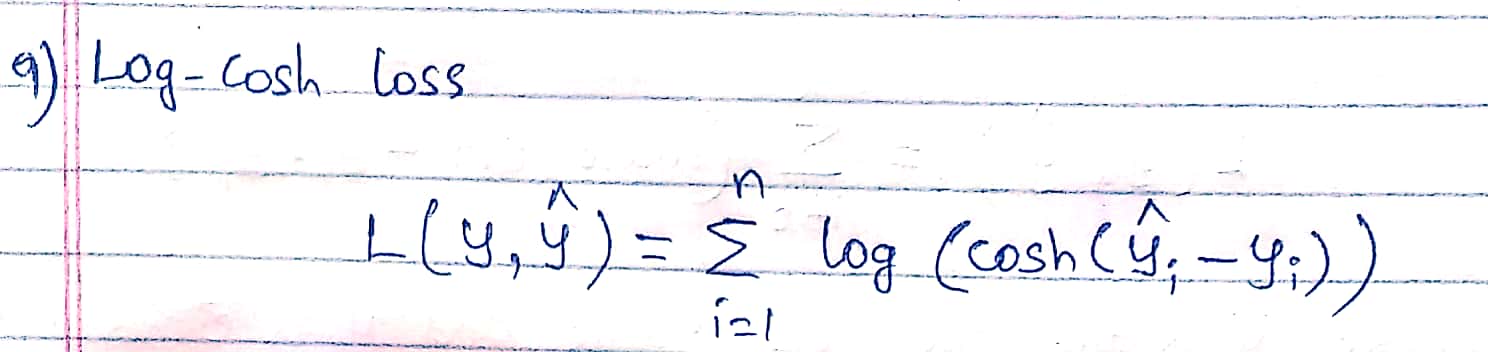 9) Log-Cosh loss
L(y, ŷ) = n∑i=1 log (cosh(ŷi - yi))